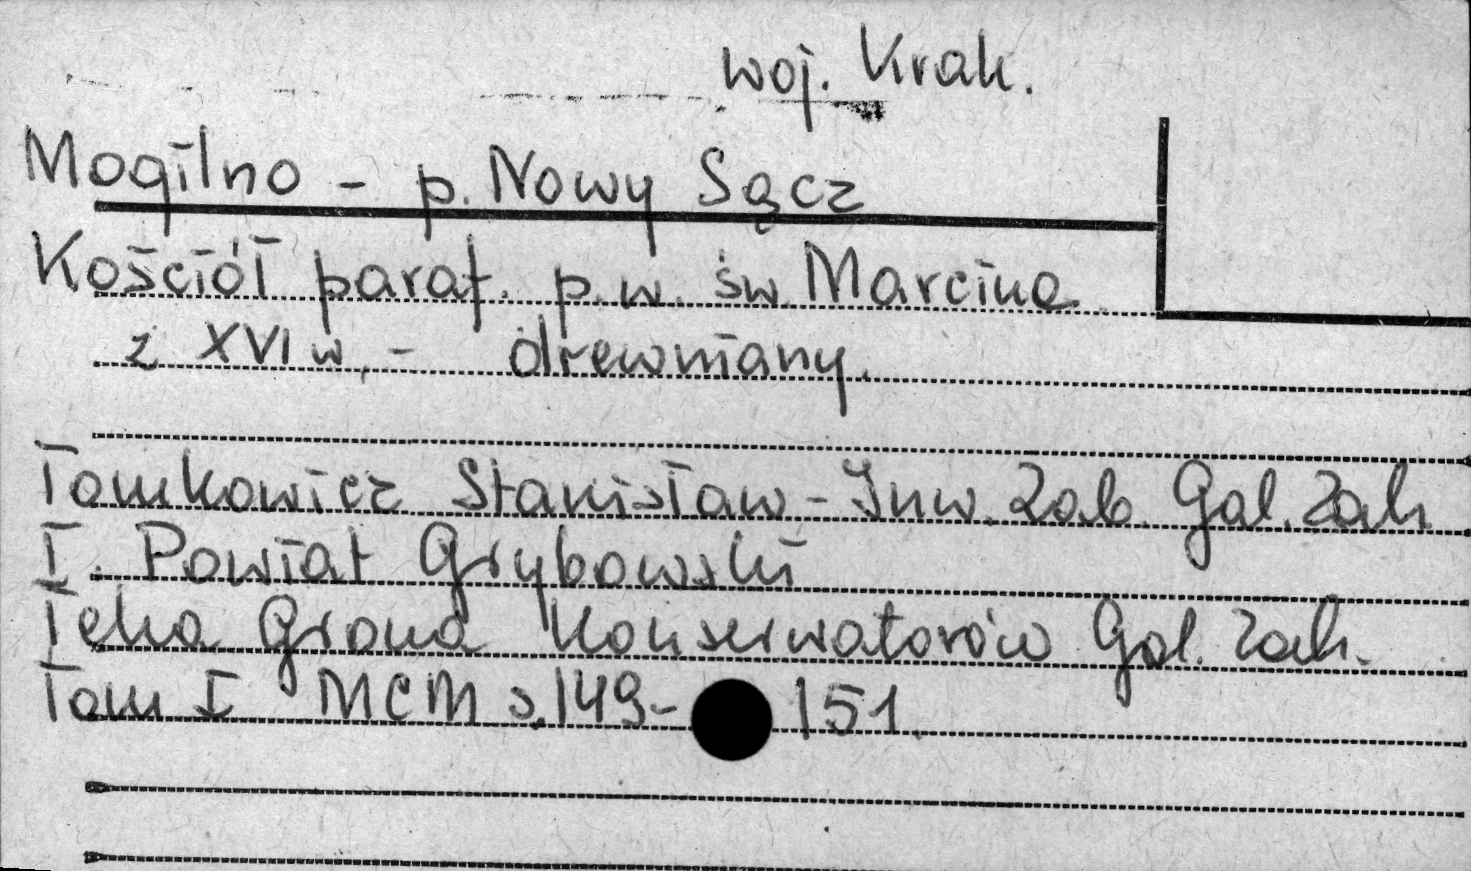 woj. Krak.
Mogilno - p. Nowy Sącz
Kościół paraf. p.w. św. Marcina
z XVI w. - drewniany.
Tomkowicz Stanisław - Inw. Zab. Gal. Zach
I. Powiat Grybowski
Teka Grona Konserwatorów Gal. Zach.
Tom I MCM s. 149-151.